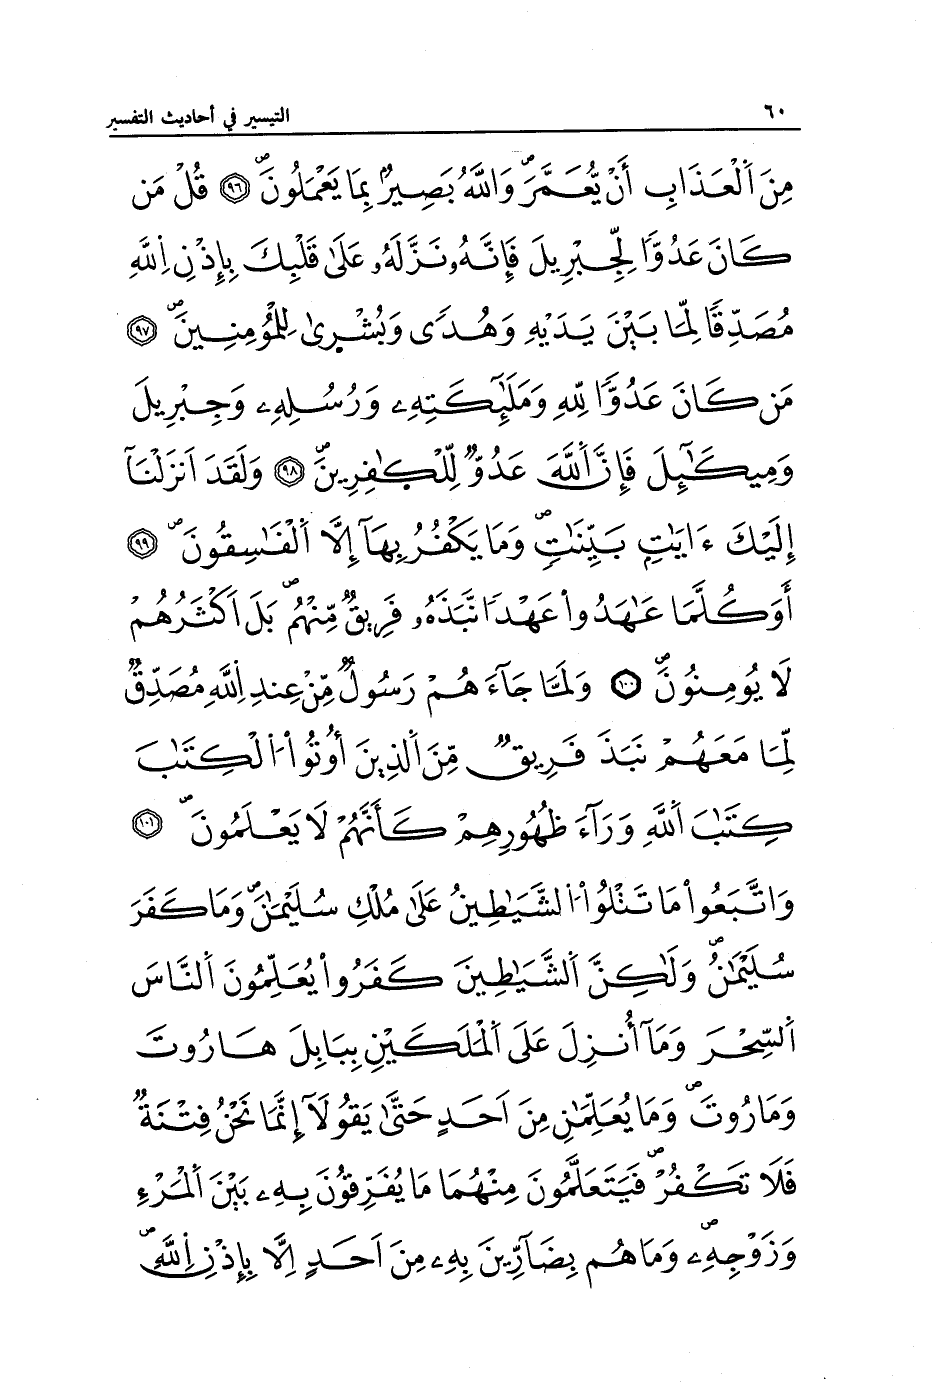 ٦٠ التيسير في أحاديث التفسير
مِنَ اَلْعَذَابِ أَنْ يُّعَمَّرَۖ وَاللَّهُ بَصِيرٌۢ بِمَا يَعْمَلُونَۖ ۝٩٦ قُلْ مَن
كَانَ عَدُوّاٗ لِّجِبْرِيلَ فَإِنَّهُۥ نَزَّلَهُۥ عَلَىٰ قَلْبِكَ بِإِذْنِ اِللَّهِ
مُصَدِّقاٗ لِّمَا بَيْنَ يَدَيْهِ وَهُدىٗ وَبُشْرىٰ لِلْمُومِنِينَۖ ۝٩٧
مَن كَانَ عَدُوّاٗ لِّلهِ وَمَلَٰٓئِكَتِهِۦ وَرُسُلِهِۦ وَجِبْرِيلَ
وَمِيكَٰٓئِلَ فَإِنَّ اَللَّهَ عَدُوّٞ لِّلْكٰفِرِينَۖ ۝٩٨ وَلَقَدَ اَنزَلْنَآ
إِلَيْكَ ءَايَٰتِۢ بَيِّنَٰتٖۖ وَمَا يَكْفُرُ بِهَآ إِلَّا اَلْفَٰسِقُونَۖ ۝٩٩
أَوَكُلَّمَا عَٰهَدُواْ عَهْداٗ نَّبَذَهُۥ فَرِيقٞ مِّنْهُمۖ بَلَ اَكْثَرُهُمْ
لَا يُومِنُونَۖ ۝١٠٠ وَلَمَّا جَآءَهُمْ رَسُولٞ مِّنْ عِندِ اِللَّهِ مُصَدِّقٞ
لِّمَا مَعَهُمْ نَبَذَ فَرِيقٞ مِّنَ اَلذِينَ أُوتُواْ اُلْكِتَٰبَ
كِتَٰبَ اَللَّهِ وَرَآءَ ظُهُورِهِمْ كَأَنَّهُمْ لَا يَعْلَمُونَۖ ۝١٠١
وَاتَّبَعُواْ مَا تَتْلُواْ اُلشَّيَٰطِينُ عَلَىٰ مُلْكِ سُلَيْمَٰنَۖ وَمَا كَفَرَ
سُلَيْمَٰنُۖ وَلَٰكِنَّ اَلشَّيَٰطِينَ كَفَرُواْ يُعَلِّمُونَ اَلنَّاسَ
اَلسِّحْرَ وَمَآ أُنزِلَ عَلَى اَلْمَلَكَيْنِ بِبَابِلَ هَارُوتَ
وَمَارُوتَۖ وَمَا يُعَلِّمَٰنِ مِنَ اَحَدٍ حَتَّىٰ يَقُولَآ إِنَّمَا نَحْنُ فِتْنَةٞ
فَلَا تَكْفُرْۖ فَيَتَعَلَّمُونَ مِنْهُمَا مَا يُفَرِّقُونَ بِهِۦ بَيْنَ اَلْمَرْءِ
وَزَوْجِهِۦۖ وَمَا هُم بِضَآرِّينَ بِهِۦ مِنَ اَحَدٍ اِلَّا بِإِذْنِ اِللَّهِۖ